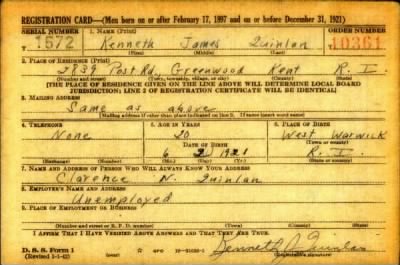 REGISTRATION CARD—(Men born on or after February 17, 1897 and on or before December 31, 1921)
SERIAL NUMBER 1. NAME (Print) ORDER NUMBER
T 1572 Kenneth James Quinlan 10361
(First) (Middle) (Last)
2. PLACE OF RESIDENCE (Print)
2839 Post Rd. Greenwood Kent R. I.
(Number and street) (Town, township, village, or city) (County) (State)
[THE PLACE OF RESIDENCE GIVEN ON THE LINE ABOVE WILL DETERMINE LOCAL BOARD
JURISDICTION; LINE 2 OF REGISTRATION CERTIFICATE WILL BE IDENTICAL]
3. MAILING ADDRESS
Same as above
[Mailing address if other than place indicated on line 2. If same insert word same]
4. TELEPHONE 5. AGE IN YEARS 6. PLACE OF BIRTH
None 20 West Warwick
DATE OF BIRTH (Town or county)
6 2 1921 R. I.
(Exchange) (Number) (Mo.) (Day) (Yr.) (State or country)
7. NAME AND ADDRESS OF PERSON WHO WILL ALWAYS KNOW YOUR ADDRESS
Clarence N. Quinlan
8. EMPLOYER'S NAME AND ADDRESS
Unemployed
9. PLACE OF EMPLOYMENT OR BUSINESS
(Number and street or R. F. D. number) (Town) (County) (State)
I AFFIRM THAT I HAVE VERIFIED ABOVE ANSWERS AND THAT THEY ARE TRUE.
D. S. S. Form 1
(Revised 1-1-42) GPO Kenneth J. Quinlan